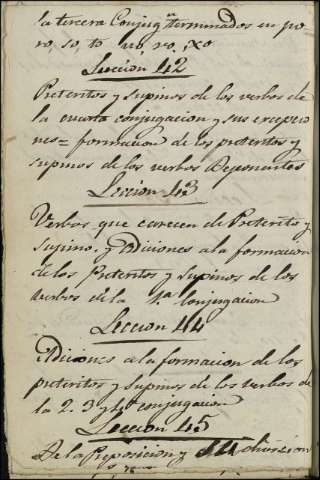 la tercera Conjug.n terminados en po
ro, so, to uo, ro. ixo
Leccion 42
Preteritos y supinos de los verbos de
la cuarta conjugacion y sus excepcio
nes = formacion de los preteritos y
supinos de los verbos Deponentes
Leccion 43
Verbos que carecen de Preterito y
Supino. y Adiciones a la formacion
de los Preteritos y supinos de los
verbos de la 1.a Conjugacion
Leccion 44
Adiciones a la formacion de los
preteritos y supinos de los verbos de
la 2. 3 y 4 conjugacion
Leccion 45
De la Preposicion y su division